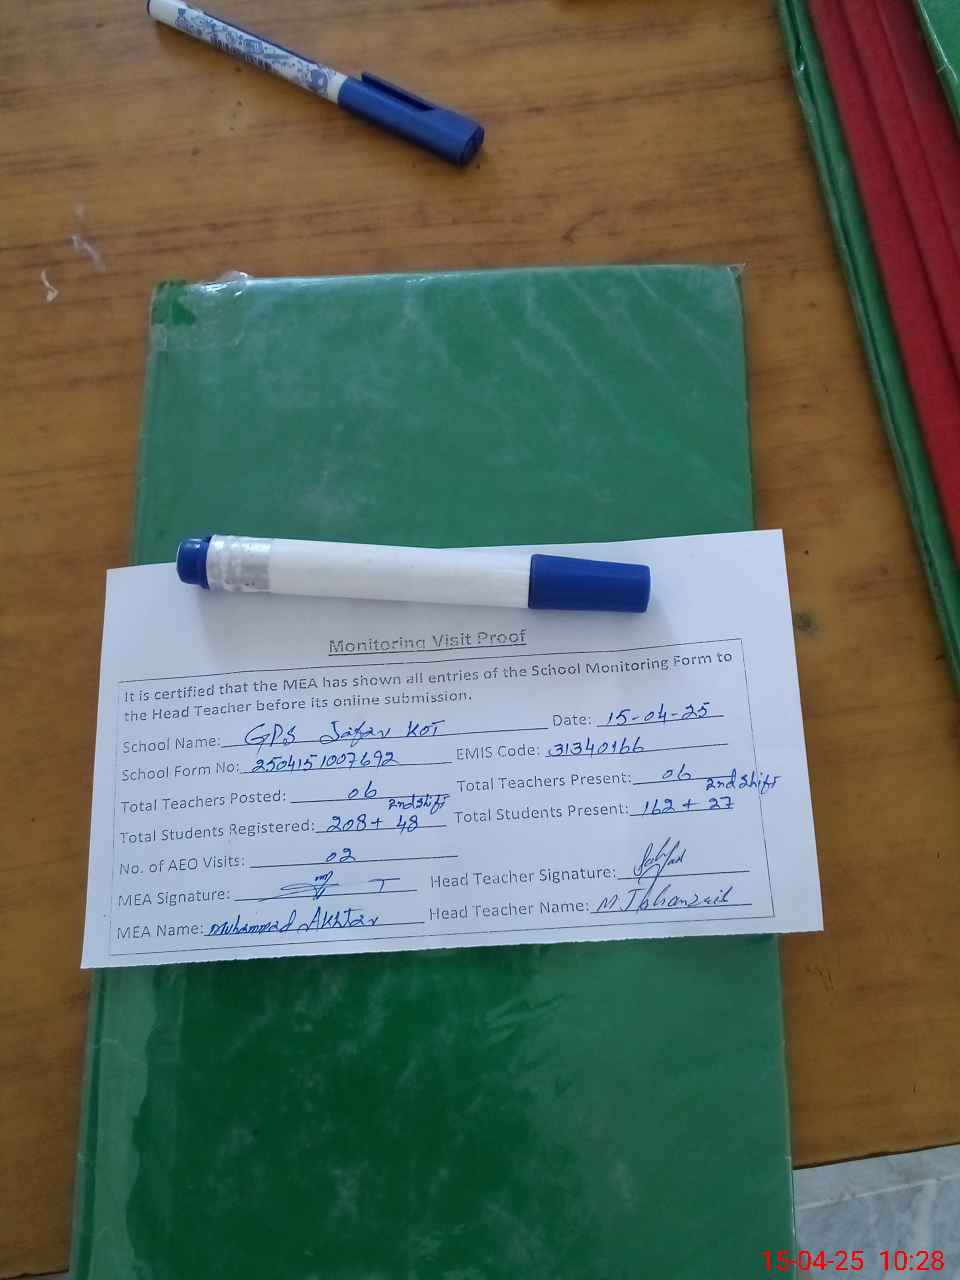 Monitoring Visit Proof
It is certified that the MEA has shown all entries of the School Monitoring Form to
the Head Teacher before its online submission.
School Name: GPS Jafar KOT Date: 15-04-25
School Form No: 2504151007692 EMIS Code: 31340166
Total Teachers Posted: 06 Total Teachers Present: 06
2nd Shift 2nd Shift
Total Students Registered: 208 + 48 Total Students Present: 162 + 27
No. of AEO Visits: 02
MEA Signature: Head Teacher Signature:
MEA Name: Muhammad Akhtar Head Teacher Name: M.
15-04-25 10:28